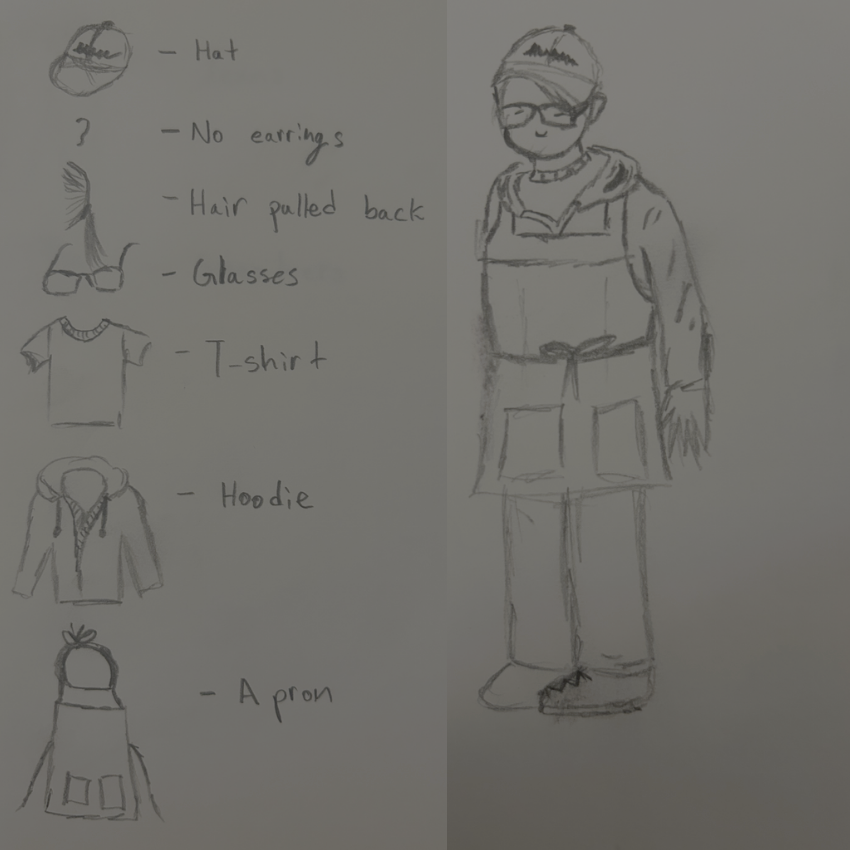 - Hat
? - No earrings
- Hair pulled back
- Glasses
- T-shirt
- Hoodie
- Apron